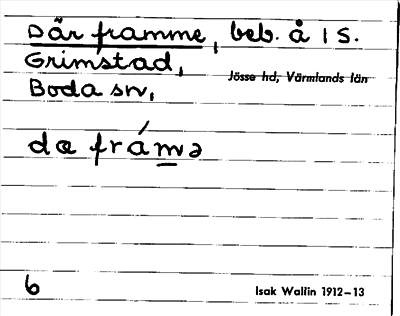 Där framme, beb. å 1 S.
Grimstad,
Jösse hd, Värmlands län
Boda sn,
dα frámə
6
Isak Wallin 1912–13